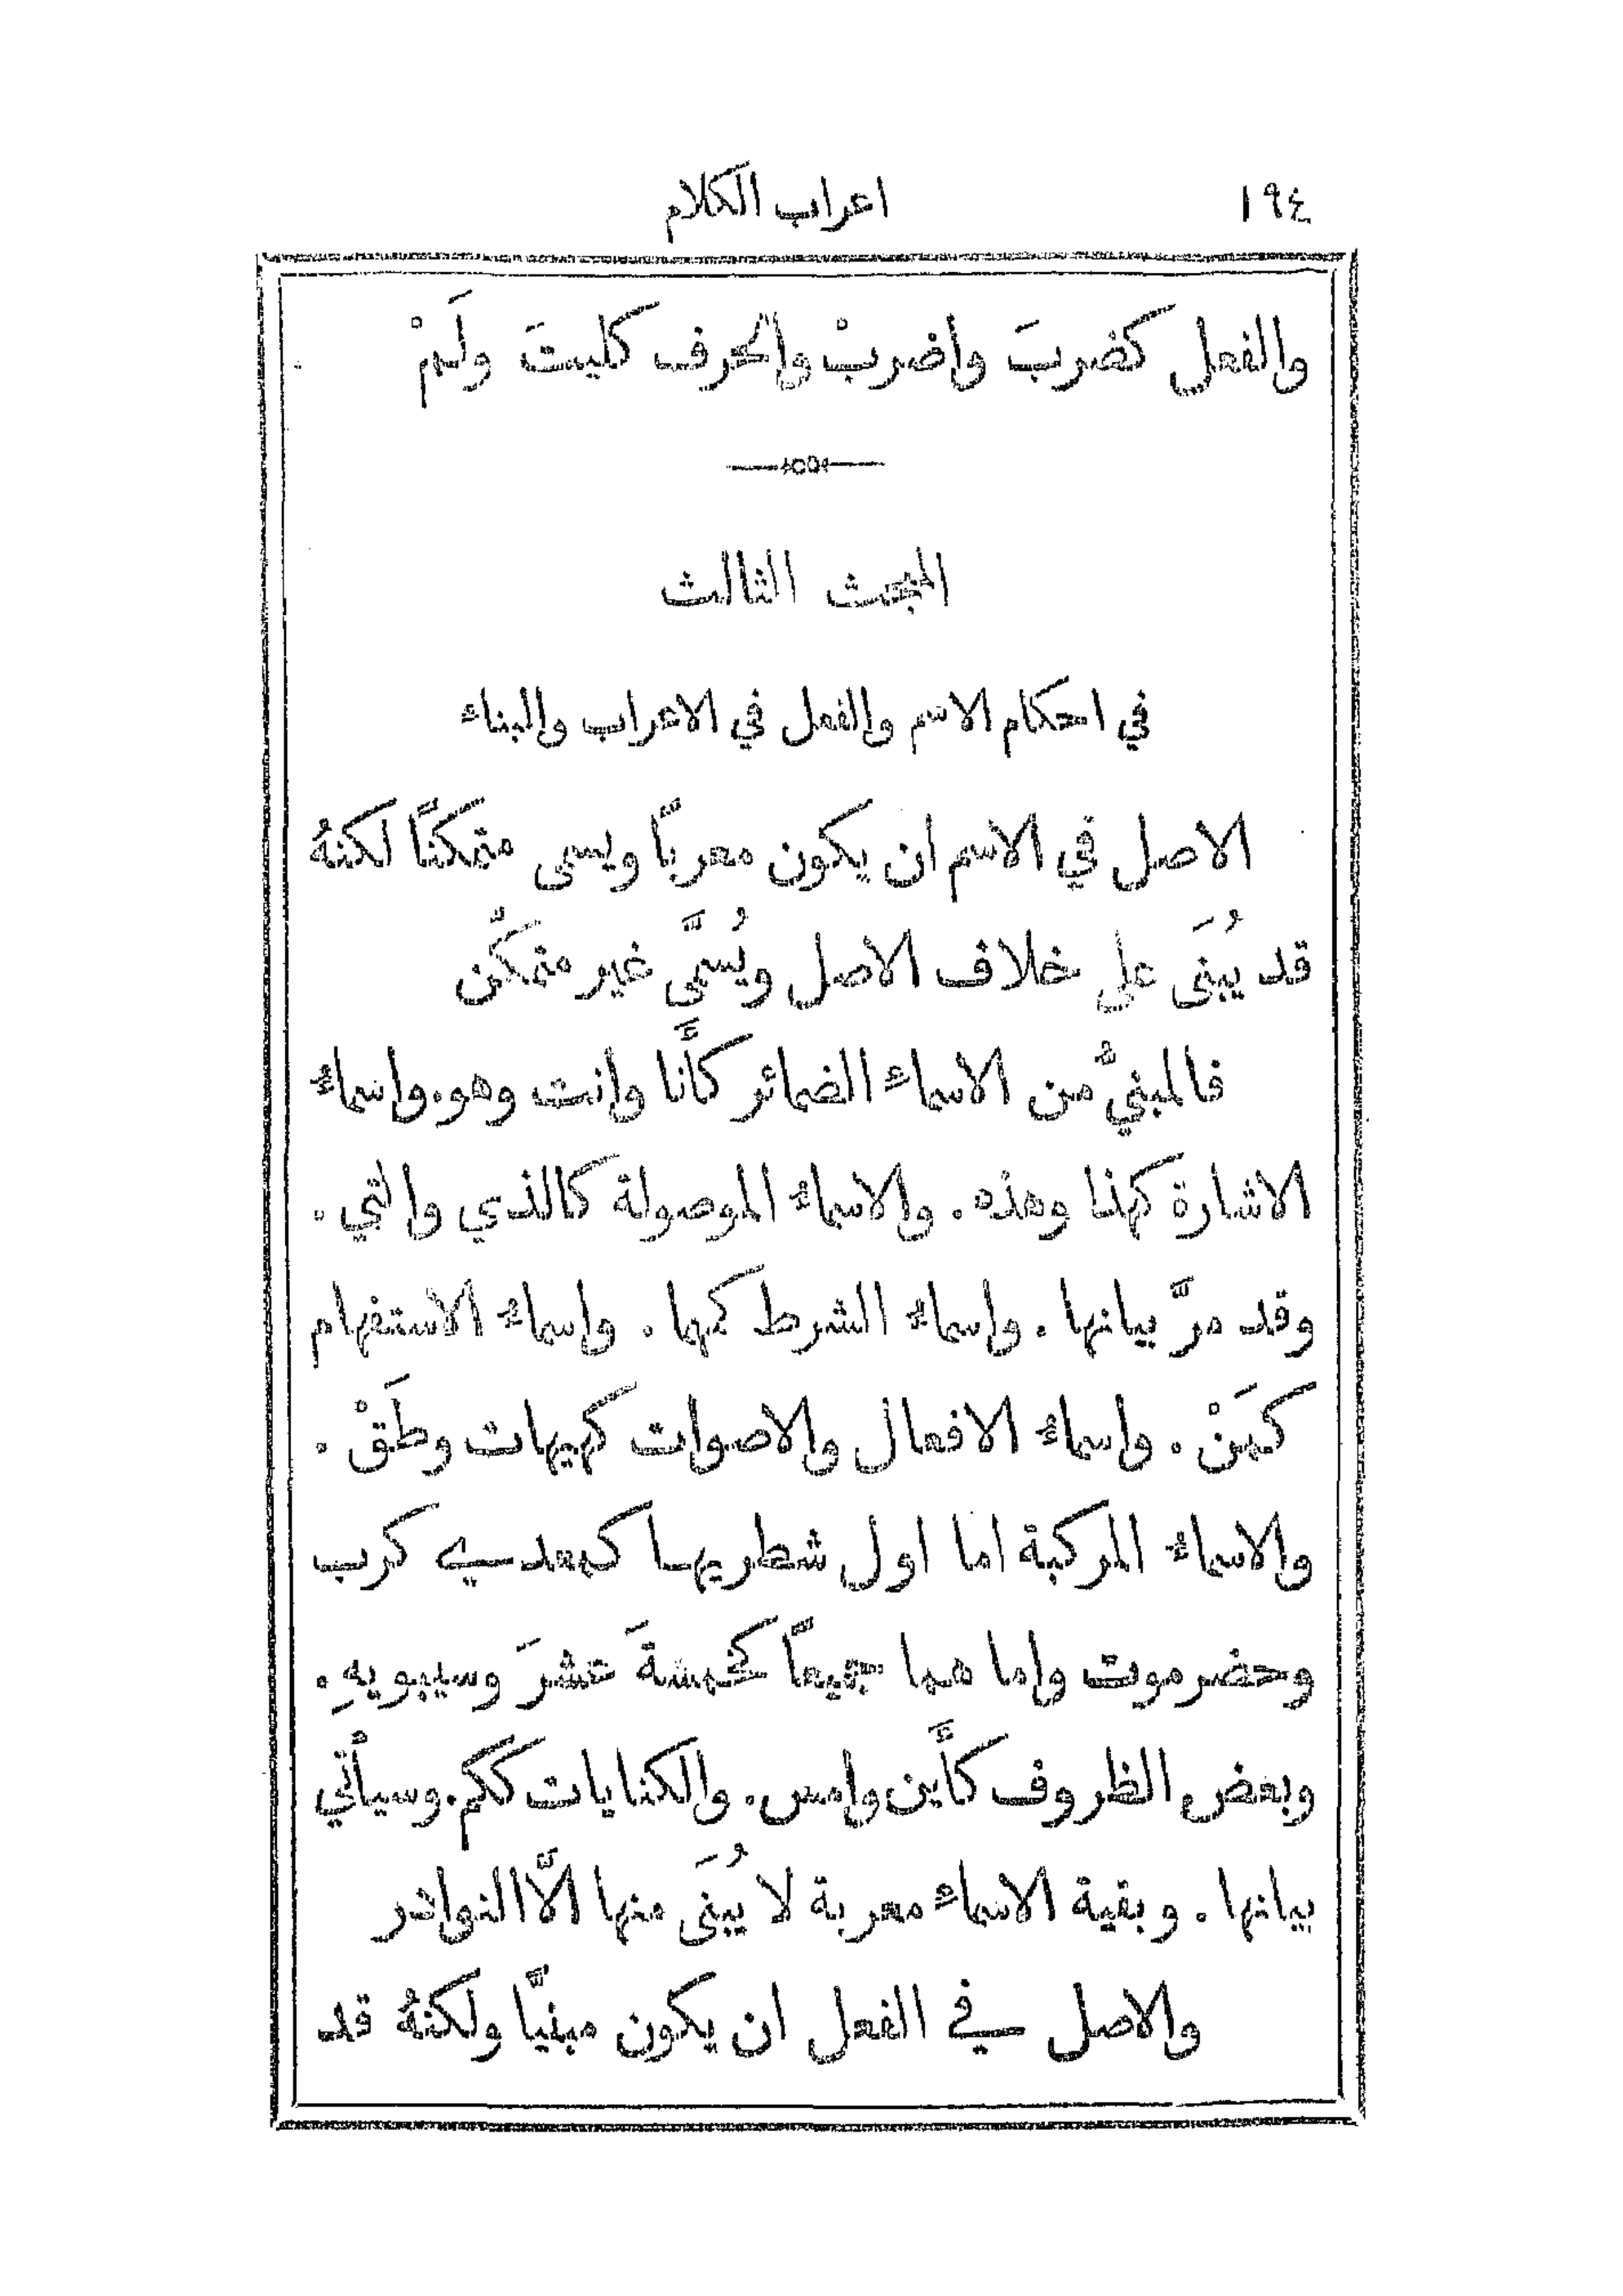 ١٩٤ اعراب الكلام
والفعل كضربَ واضربْ والحرف كليتَ ولَمْ
المبحث الثالث
في احكام الاسم والفعل في الاعراب والبناء
الاصل في الاسم ان يكون معربًا ويسمى متمكنًا لكنهُ
قد يُبنَى على خلاف الاصل ويُسمَّى غير متمكّن
فالمبنيُّ من الاسماء الضمائر كأَنا وانت وهو. واسماء
الاشارة كهذا وهذه. والاسماء الموصولة كالذي والتي.
وقد مرَّ بيانها. واسماء الشرط كمهما. واسماء الاستفهام
كمَنْ. واسماء الافعال والاصوات كهيهات وطَقْ.
والاسماء المركبة اما اول شطريها كمعدي كرب
وحضرموت واما هما جميعًا كخمسةَ عشرَ وسيبويهِ.
وبعض الظروف كأَين وامس. والكنايات ككم. وسيأْتي
بيانها. وبقية الاسماء معربة لا يُبنَى منها الَّا النوادر
والاصل في الفعل ان يكون مبنيًّا ولكنهُ قد